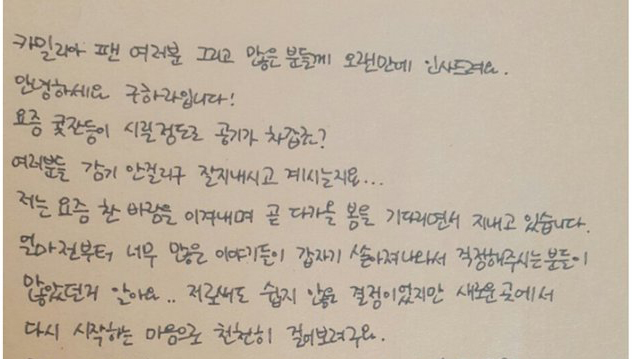 카밀리아 팬 여러분 그리고 많은 분들께 오랜만에 인사드려요.
안녕하세요 구하라입니다!
요즘 콧잔등이 시릴정도로 공기가 차갑죠?
여러분들 감기 안걸리구 잘지내시고 계시는지요...
저는 요즘 찬 바람을 이겨내며 곧 다가올 봄을 기다리면서 지내고 있습니다.
얼마전부터 너무 많은 이야기들이 갑자기 쏟아져나와서 걱정해주시는 분들이
많았던거 알아요.. 저로써도 쉽지 않은 결정이었지만 새로운 곳에서
다시 시작하는 마음으로 천천히 걸어보려구요.